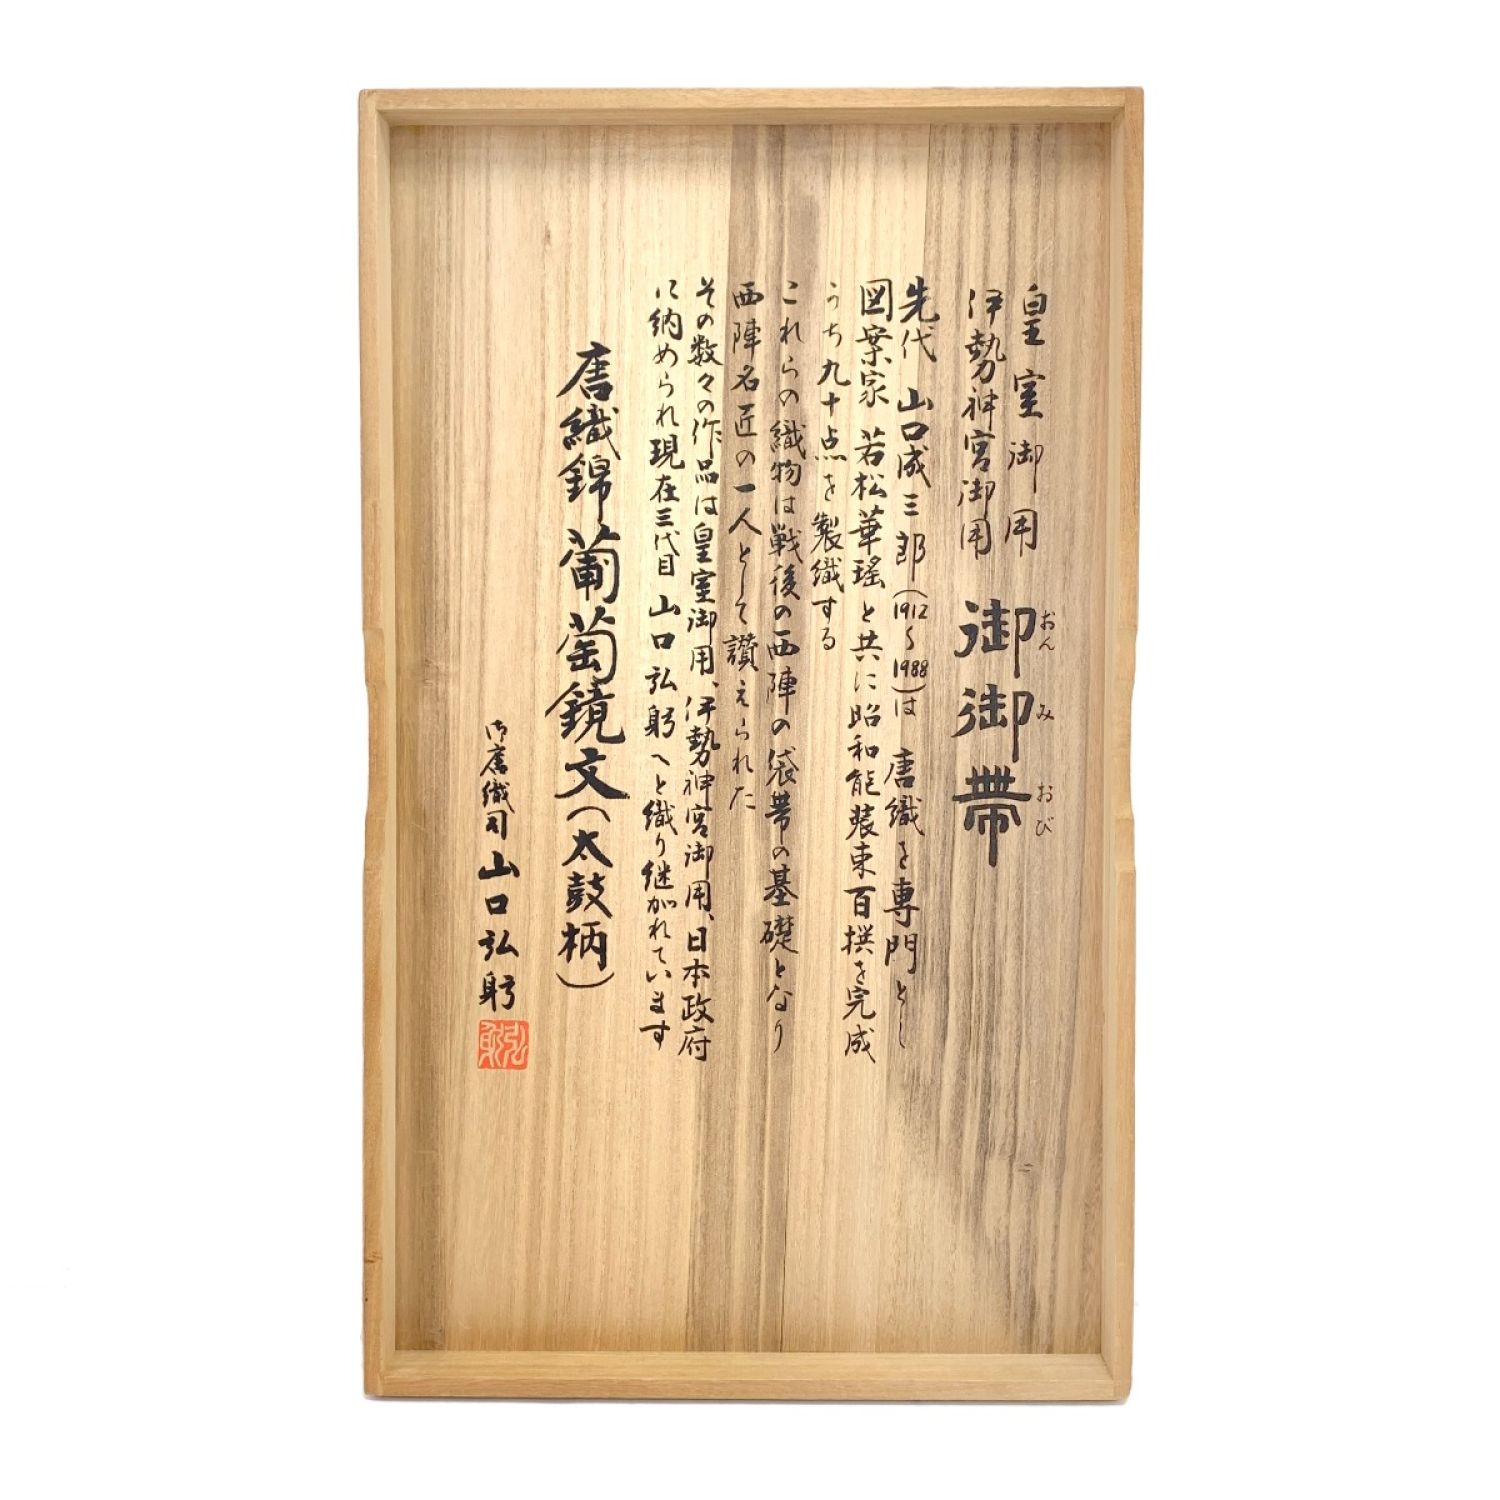 皇室御用
伊勢神宮御用
御御帶
おん み おび
先代 山口成三郎(1912〜1988)は 唐織を専門とし
図案家 若松華瑤と共に昭和能装束百撰を完成
うち九十点を製織する
これらの織物は戦後の西陣の袋帯の基礎となり
西陣名匠の一人として讃えられた
その数々の作品は皇室御用、伊勢神宮御用、日本政府
に納められ現在三代目 山口弘躬へと織り継がれています
唐織錦 葡萄鏡文(太鼓柄)
御唐織司 山口弘躬
弘躬